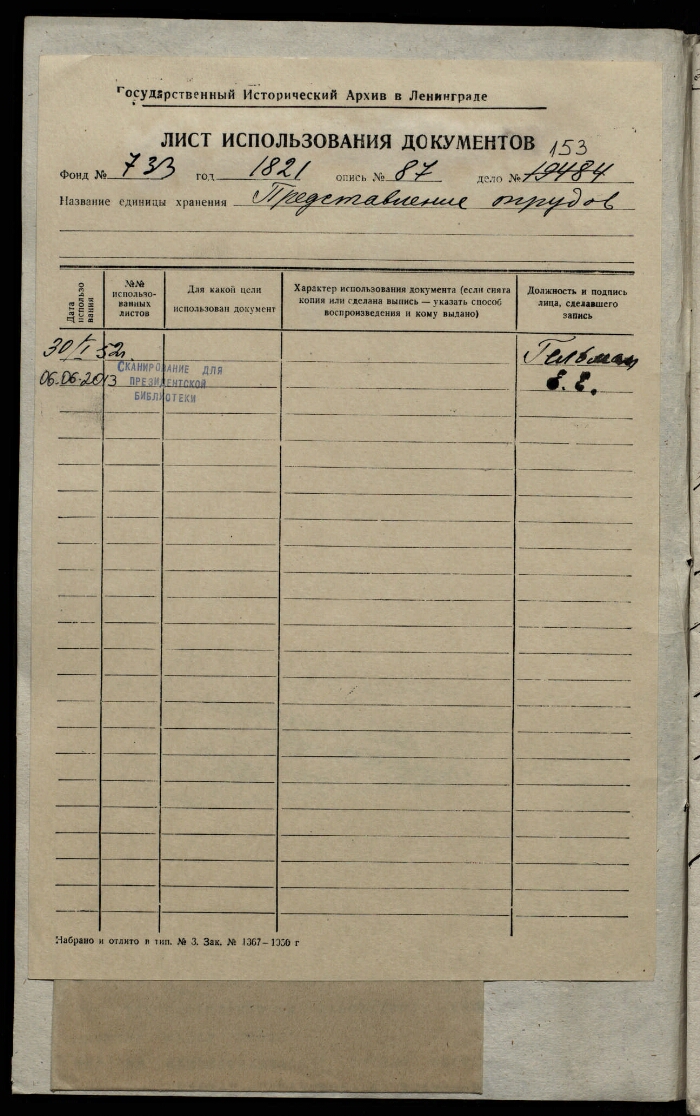 Государственный Исторический Архив в Ленинграде
ЛИСТ ИСПОЛЬЗОВАНИЯ ДОКУМЕНТОВ
153
Фонд № 733 год 1821 опись № 87 дело № 19484
Название единицы хранения Представление
Дата использования
№№ использо-
ванных
листов
Для какой цели
использован документ
Характер использования документа (если снята
копия или сделана выпись — указать способ
воспроизведения и кому выдано)
Должность и подпись
лица, сделавшего
запись
30/VI 52г.
Гельман
Е. Е.
06.06.2013
СКАНИРОВАНИЕ ДЛЯ
ПРЕЗИДЕНТСКОЙ
БИБЛИОТЕКИ
Набрано и отлито в тип. № 3. Зак. № 1367—1950 г